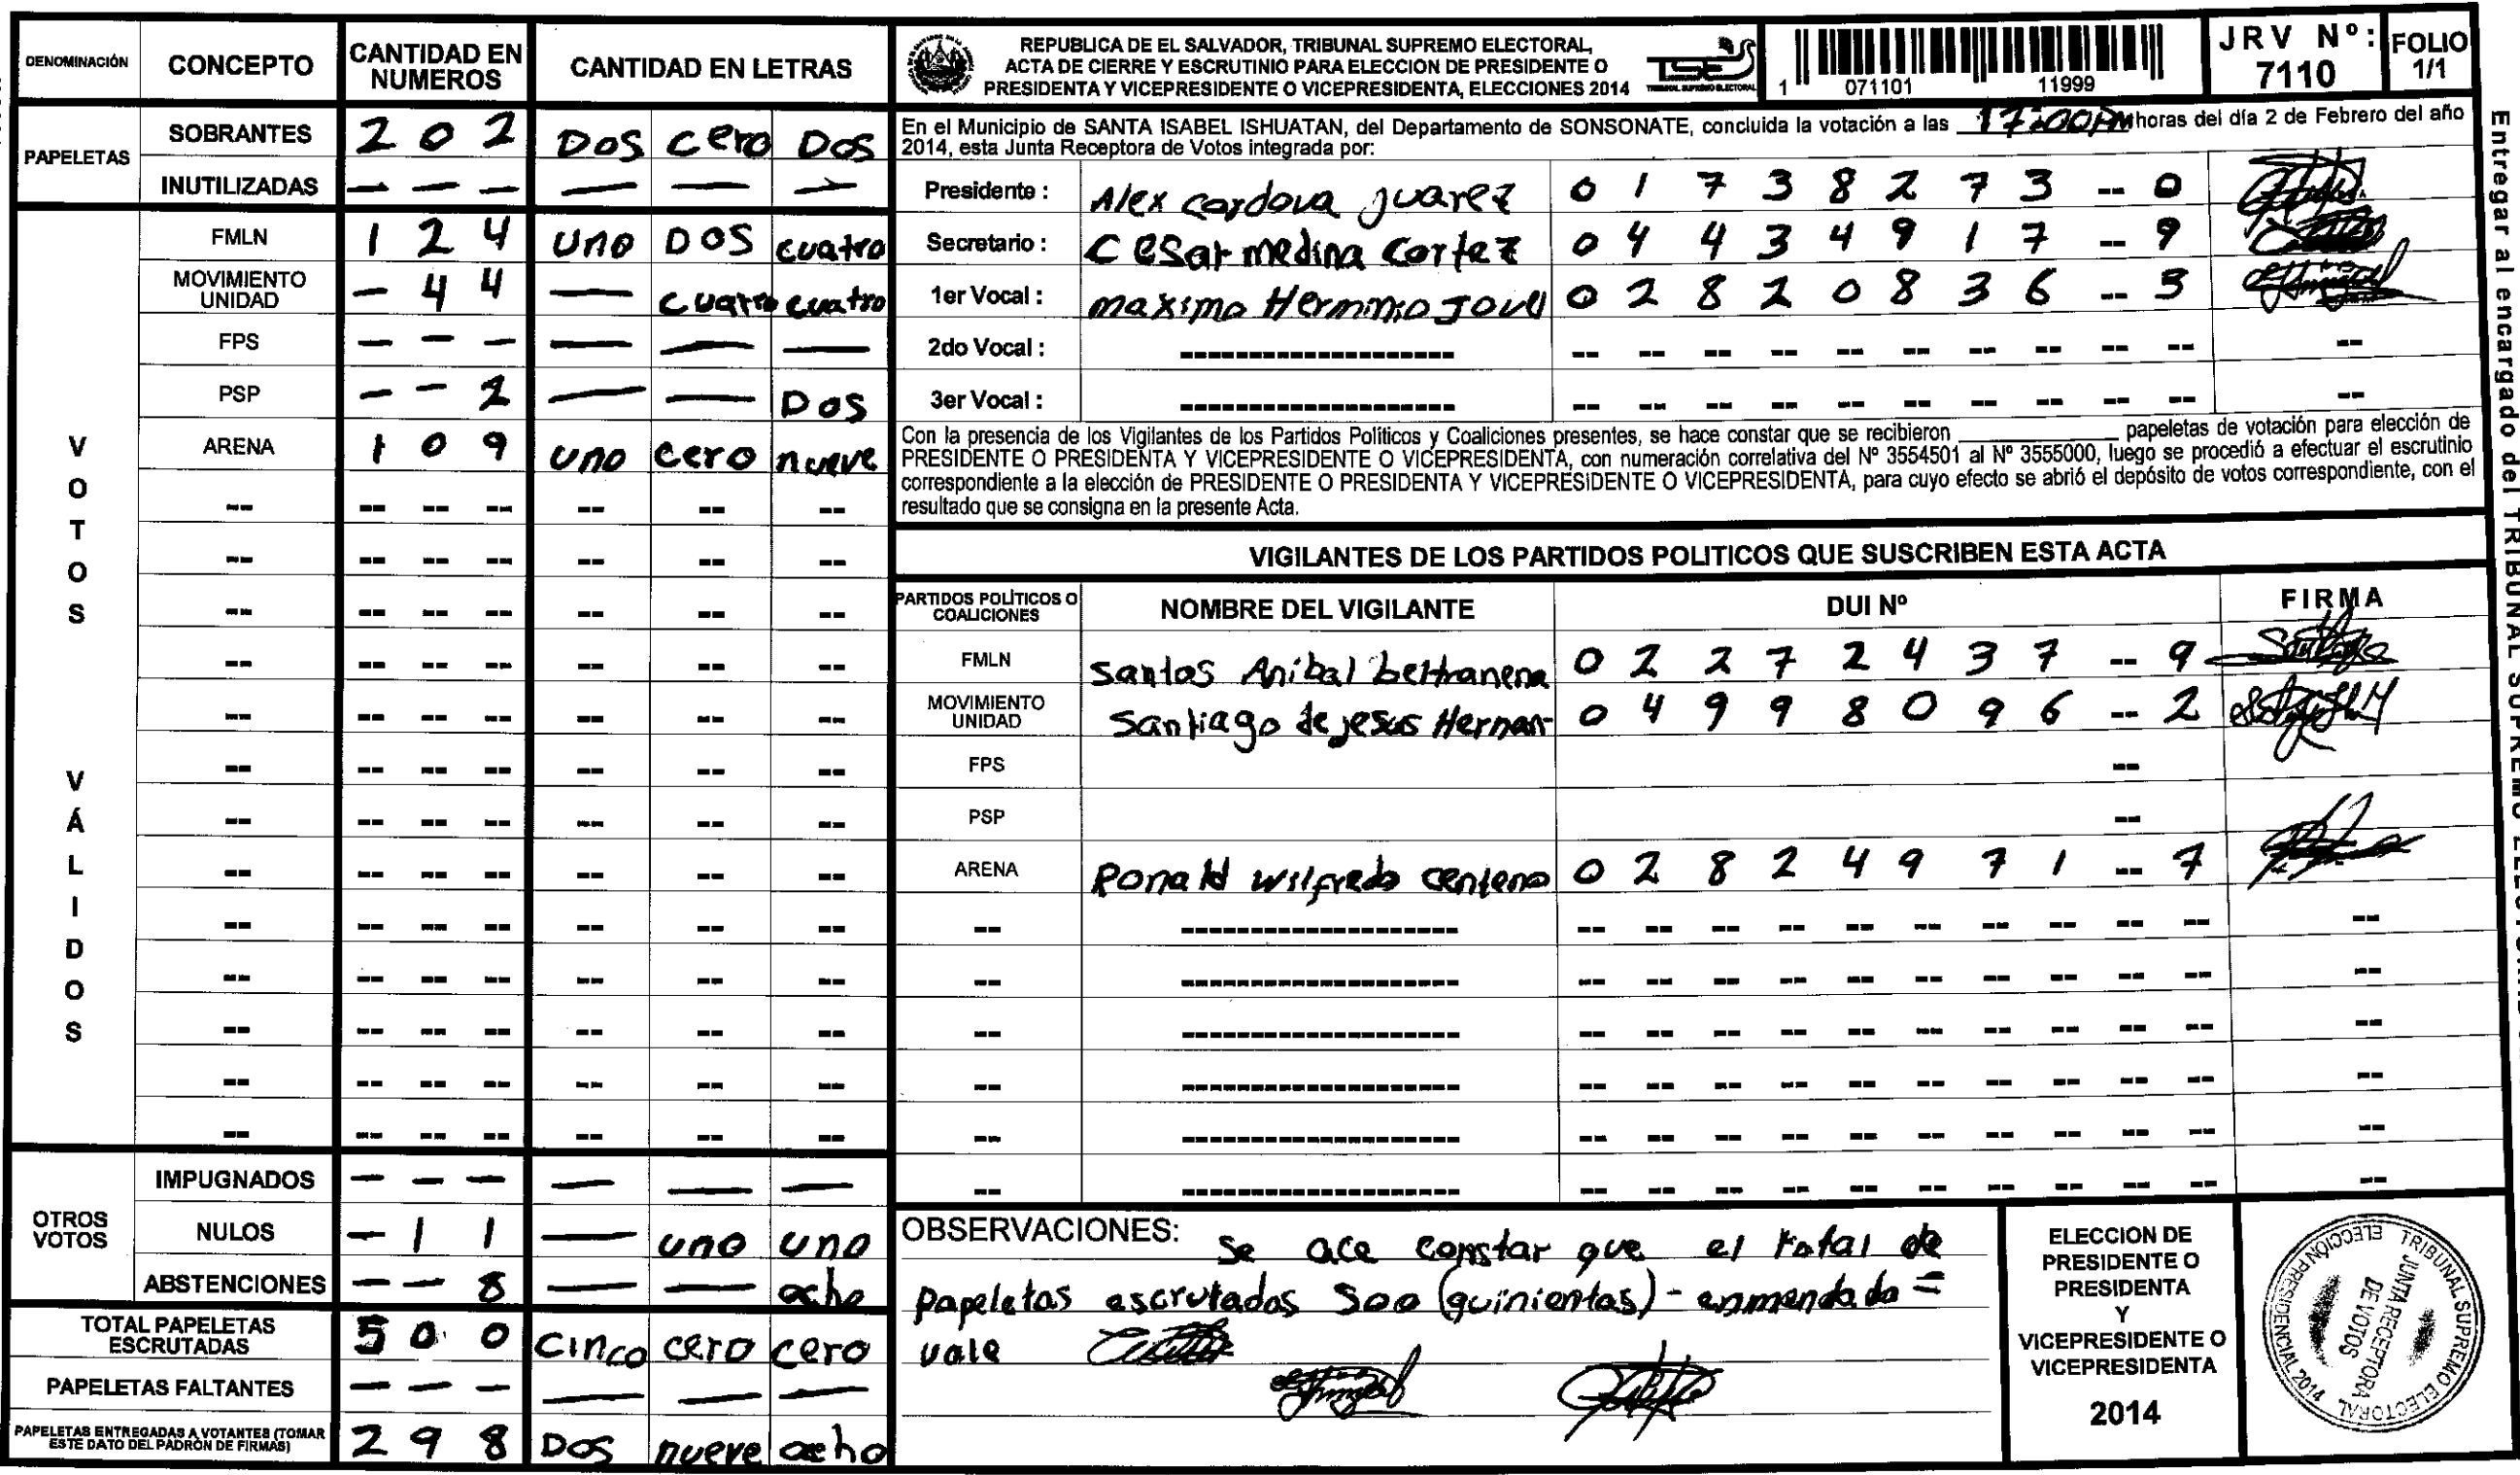 DENOMINACIÓN CONCEPTO CANTIDAD EN NUMEROS CANTIDAD EN LETRAS
PAPELETAS
SOBRANTES 2 0 2 Dos cero Dos
INUTILIZADAS — — — — — —
VOTOS VÁLIDOS
FMLN 1 2 4 uno DOS cuatro
MOVIMIENTO UNIDAD — 4 4 — cuatro cuatro
FPS — — — — — —
PSP — — 2 — — Dos
ARENA 1 0 9 uno cero nueve
-- -- -- -- -- -- --
-- -- -- -- -- -- --
-- -- -- -- -- -- --
-- -- -- -- -- -- --
-- -- -- -- -- -- --
-- -- -- -- -- -- --
-- -- -- -- -- -- --
-- -- -- -- -- -- --
-- -- -- -- -- -- --
-- -- -- -- -- -- --
-- -- -- -- -- -- --
-- -- -- -- -- -- --
-- -- -- -- -- -- --
OTROS VOTOS
IMPUGNADOS — — — — — —
NULOS — 1 1 — uno uno
ABSTENCIONES — — 8 — — ocho
TOTAL PAPELETAS ESCRUTADAS 5 0 0 cinco cero cero
PAPELETAS FALTANTES — — — — — —
PAPELETAS ENTREGADAS A VOTANTES (TOMAR ESTE DATO DEL PADRÓN DE FIRMAS) 2 9 8 Dos nueve ocho
REPUBLICA DE EL SALVADOR, TRIBUNAL SUPREMO ELECTORAL,
ACTA DE CIERRE Y ESCRUTINIO PARA ELECCION DE PRESIDENTE O
PRESIDENTA Y VICEPRESIDENTE O VICEPRESIDENTA, ELECCIONES 2014
TSE
TRIBUNAL SUPREMO ELECTORAL
1 071101 11999
JRV Nº: 7110
FOLIO 1/1
En el Municipio de SANTA ISABEL ISHUATAN, del Departamento de SONSONATE, concluida la votación a las 17:00 PM horas del día 2 de Febrero del año
2014, esta Junta Receptora de Votos integrada por:
Presidente : Alex cordova juarez 0 1 7 3 8 2 7 3 -- 0
Secretario : Cesar medina cortez 0 4 4 3 4 9 1 7 -- 9
1er Vocal : maximo Herminio Jove 0 2 8 2 0 8 3 6 -- 5
2do Vocal : -------------------- -- -- -- -- -- -- -- -- -- -- --
3er Vocal : -------------------- -- -- -- -- -- -- -- -- -- -- --
Con la presencia de los Vigilantes de los Partidos Políticos y Coaliciones presentes, se hace constar que se recibieron ________ papeletas de votación para elección de
PRESIDENTE O PRESIDENTA Y VICEPRESIDENTE O VICEPRESIDENTA, con numeración correlativa del Nº 3554501 al Nº 3555000, luego se procedió a efectuar el escrutinio
correspondiente a la elección de PRESIDENTE O PRESIDENTA Y VICEPRESIDENTE O VICEPRESIDENTA, para cuyo efecto se abrió el depósito de votos correspondiente, con el
resultado que se consigna en la presente Acta.
VIGILANTES DE LOS PARTIDOS POLITICOS QUE SUSCRIBEN ESTA ACTA
PARTIDOS POLÍTICOS O COALICIONES NOMBRE DEL VIGILANTE DUI Nº FIRMA
FMLN Santos Anibal beltranena 0 2 2 7 2 4 3 7 -- 9
MOVIMIENTO UNIDAD Santiago de jesus Hernan- 0 4 9 9 8 0 9 6 -- 2
FPS --
PSP --
ARENA Ronald wilfredo centeno 0 2 8 2 4 9 7 1 -- 7
-- -------------------- -- -- -- -- -- -- -- -- -- -- --
-- -------------------- -- -- -- -- -- -- -- -- -- -- --
-- -------------------- -- -- -- -- -- -- -- -- -- -- --
-- -------------------- -- -- -- -- -- -- -- -- -- -- --
-- -------------------- -- -- -- -- -- -- -- -- -- -- --
-- -------------------- -- -- -- -- -- -- -- -- -- -- --
OBSERVACIONES: Se ace constar que el total de
papeletas escrutados 500 (quinientas) - enmendado =
vale
ELECCION DE
PRESIDENTE O
PRESIDENTA
Y
VICEPRESIDENTE O
VICEPRESIDENTA
2014
TRIBUNAL SUPREMO ELECTORAL
ELECCIÓN PRESIDENCIAL 2014
JUNTA RECEPTORA
DE VOTOS
Entregar al encargado del TRIBUNAL SUPREMO